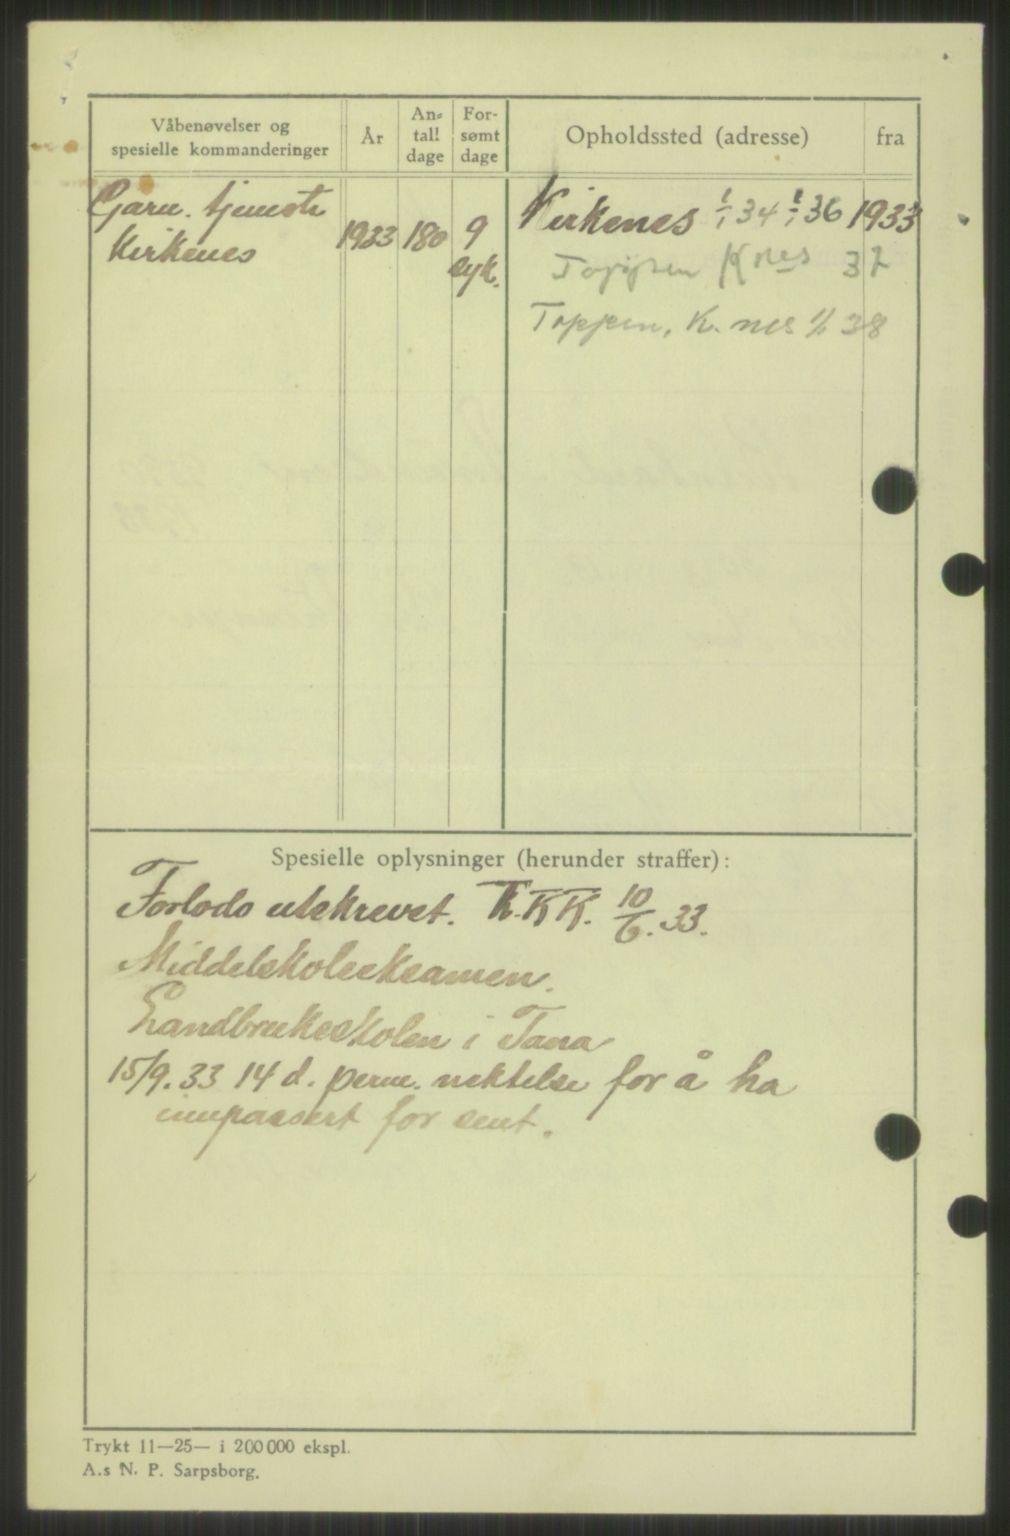 Våbenøvelser og
spesielle kommanderinger
År
An-
tall
dage
For-
sømt
dage
Opholdssted (adresse)
fra
Garn. tjeneste
Kirkenes
1933
180
9
syk.
Kirkenes 1/1 34 1/1 36 1933
Toppen Knes 37
Toppen, K. nes 1/1 38
Spesielle oplysninger (herunder straffer):
Forlods utskrevet. K.K.K. 10/6. 33.
Middelskoleeksamen.
Landbruksskolen i Tana
15/9. 33 14 d. perm. nektelse for å ha
innpassert for sent.
Trykt 11—25— i 200 000 ekspl.
A.s N. P. Sarpsborg.